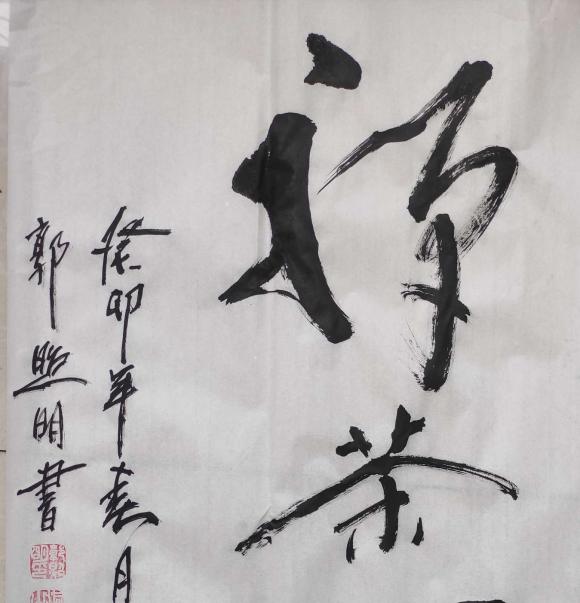 禅茶
癸卯年春月
郭照明書